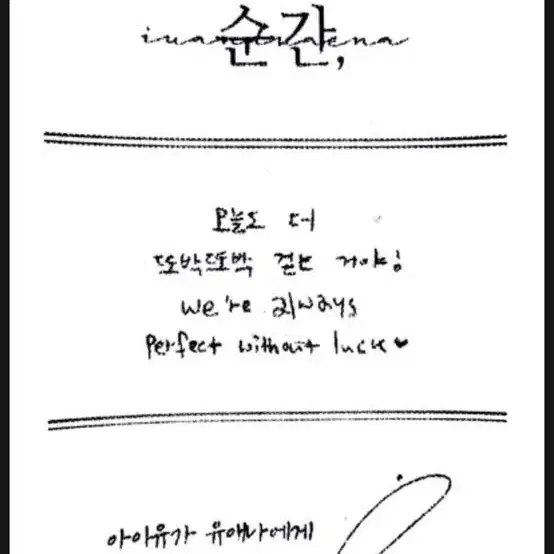 순간,
오늘도 더
또박또박 걷는 거야!
we're always
perfect without luck ♥
아이유가 유애나에게